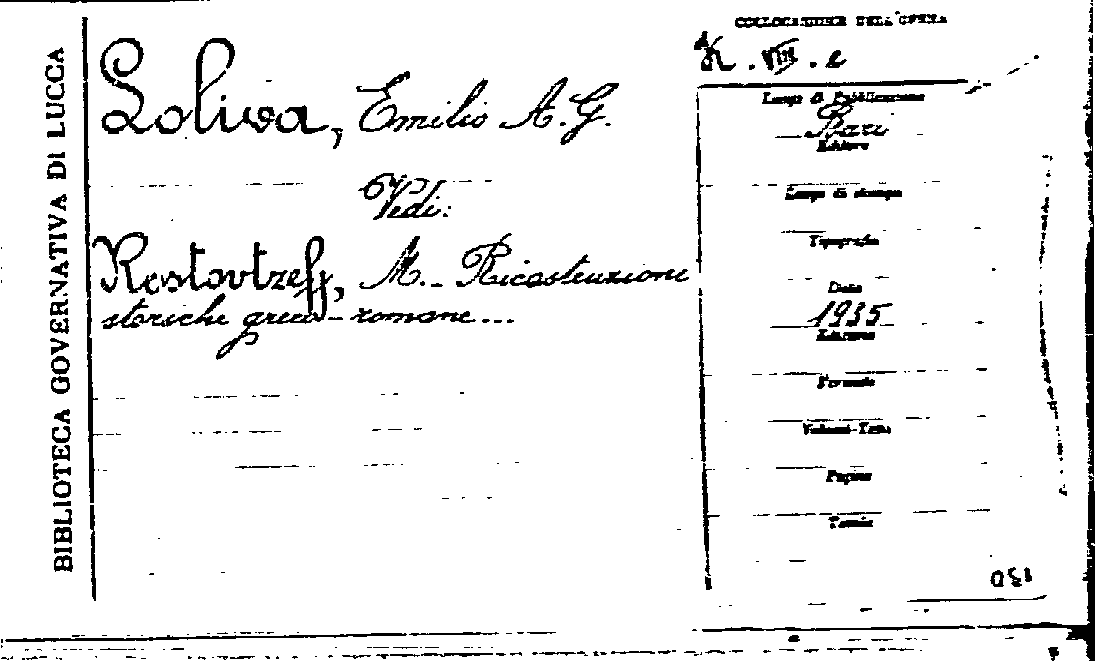 BIBLIOTECA GOVERNATIVA DI LUCCA
COLLOCAZIONE DELL'OPERA
K. VIII. e
Loliva, Emilio A. G.
Vedi:
Rostovtzeff, M. - Ricostruzione
storiche greco-romane...
Luogo di Pubblicazione
Bari
Editore
Luogo di stampa
Tipografia
Data
1935
Edizione
Formato
Volumi-Tomi
Pagine
Tavole